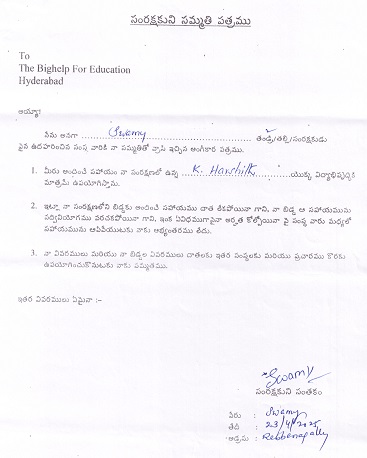 సంరక్షకుని సమ్మతి పత్రము
To
The Bighelp For Education
Hyderabad
అయ్యా!
నేను అనగా ......Swamy...... తండ్రి/తల్లి/సంరక్షకుడు
పైన ఉదహరించిన సంస్థ వారికి నా సమ్మతితో వ్రాసి ఇచ్చిన అంగీకార పత్రము.
1. మీరు అందించే సహాయం నా సంరక్షణలో ఉన్న ...K. Harshith...యొక్క విద్యాభివృద్ధికి
మాత్రమే ఉపయోగిస్తాము.
2. ఇట్లా నా సంరక్షణలోని బిడ్డకు అందించే సహాయము దాత లేకపోయినా గాని, నా బిడ్డ ఆ సహాయమును
సద్వినియోగము పరచకపోయినా గాని, ఇంక ఏవిధముగానైనా అర్హత కోల్పోయినా పై సంస్థ వారు మధ్యలో
సహాయమును ఆపివేయుటకు నాకు అభ్యంతరము లేదు.
3. నా వివరములు మరియు నా బిడ్డల వివరములు దాతలకు ఇతర సంస్థలకు మరియు ప్రచారము కొరకు
ఉపయోగించుకొనుటకు నాకు సమ్మతము.
ఇతర వివరములు ఏమైనా :-
Swamy
సంరక్షకుని సంతకం
పేరు : Swamy
తేదీ : 23/4/2025
అడ్రసు : Rebbenapally